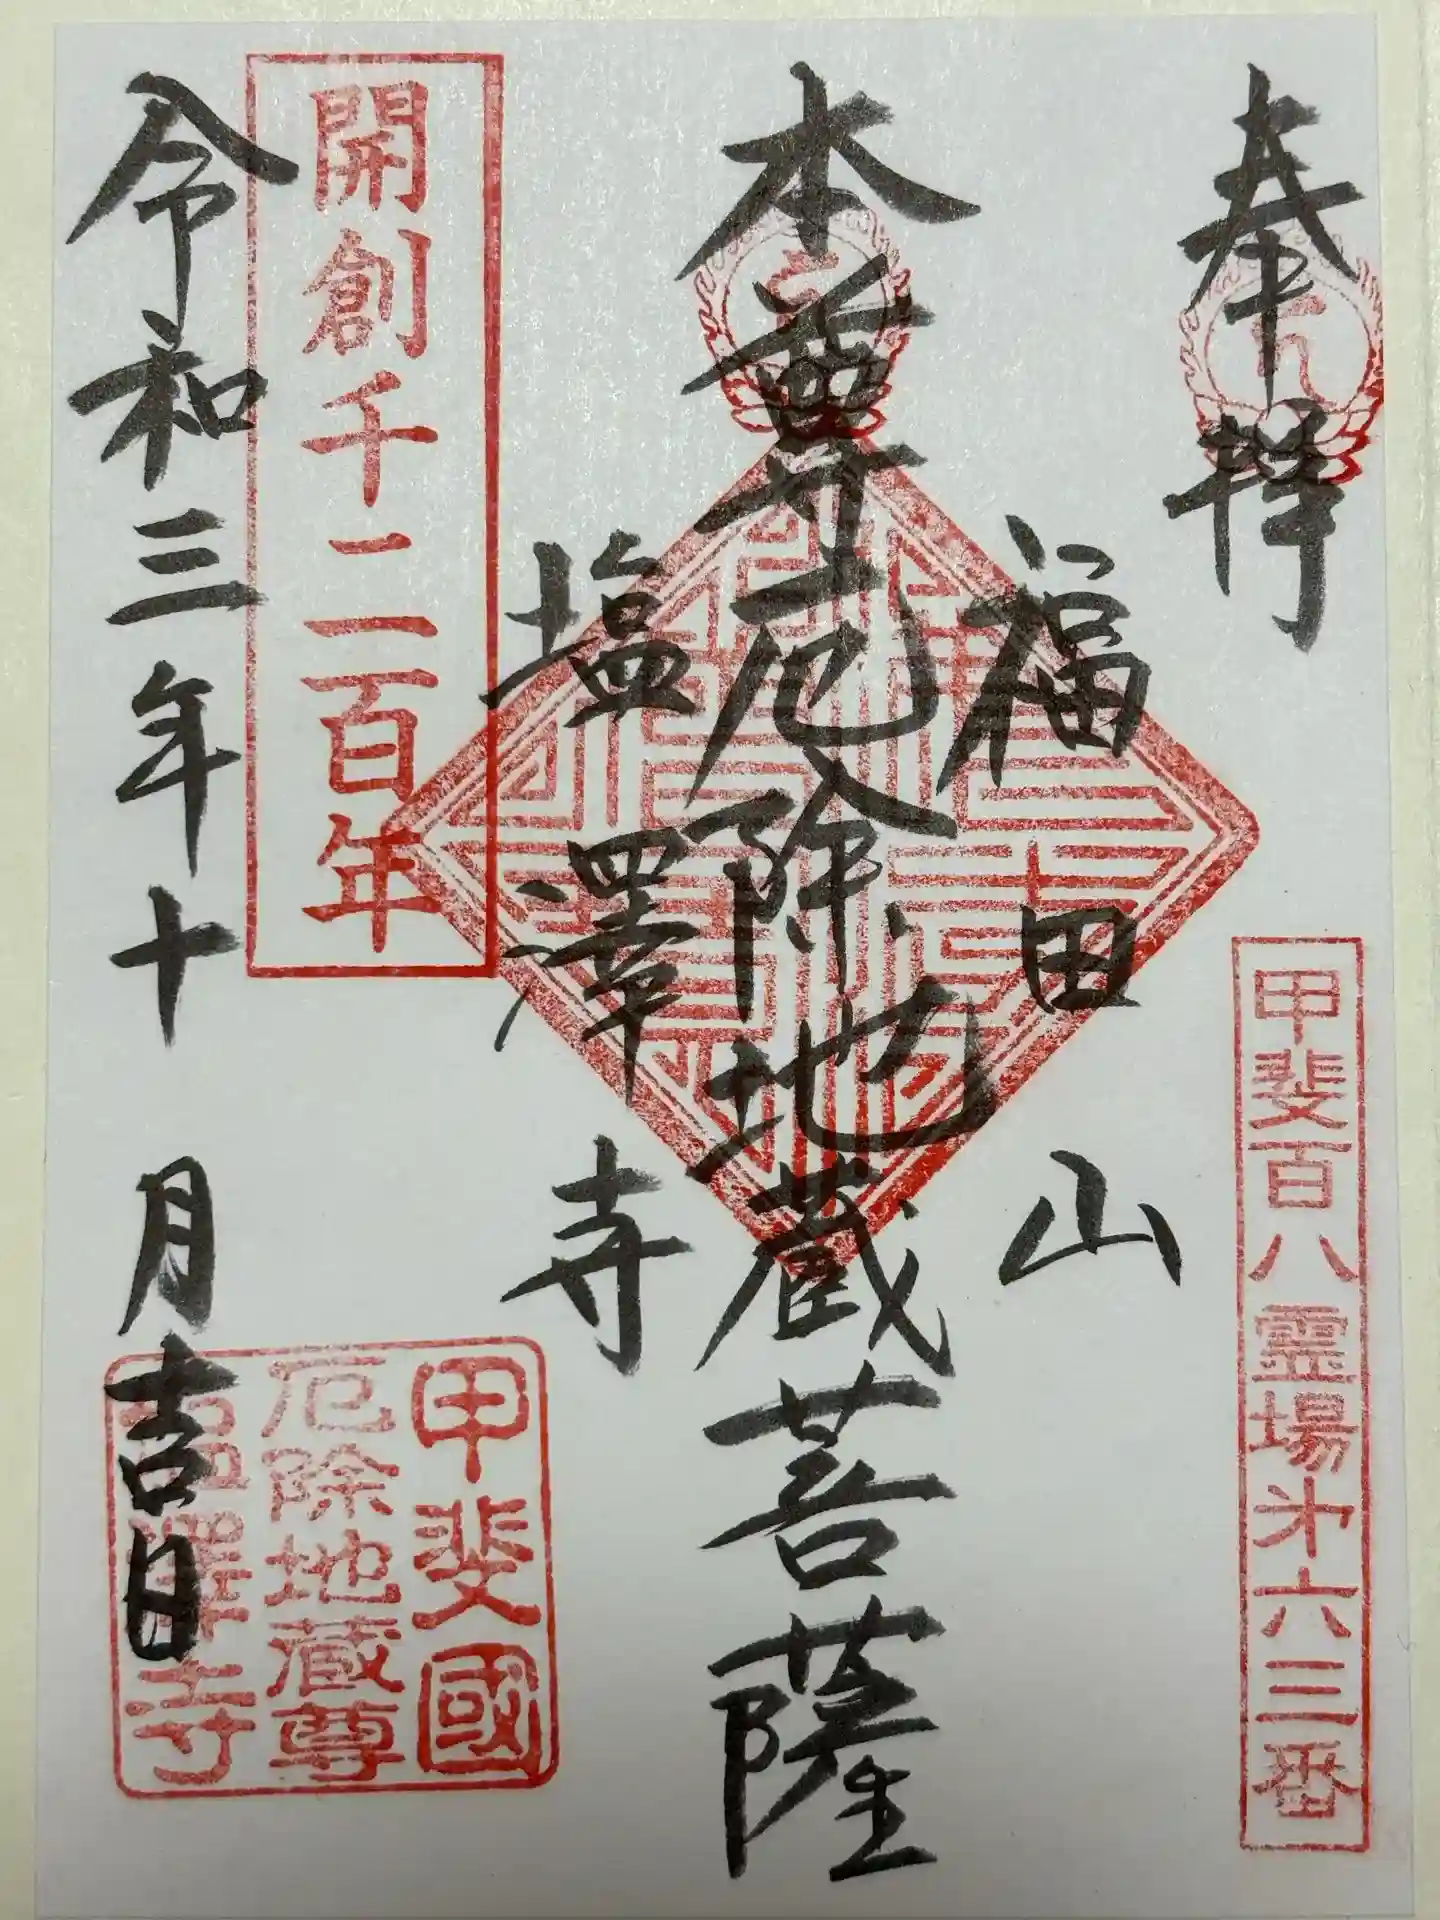 奉拝
甲斐百八霊場第六三番
福田山
本尊厄除地蔵菩薩
塩澤寺
開創千二百年
令和三年十月吉日
甲斐國
厄除地蔵尊
塩澤寺